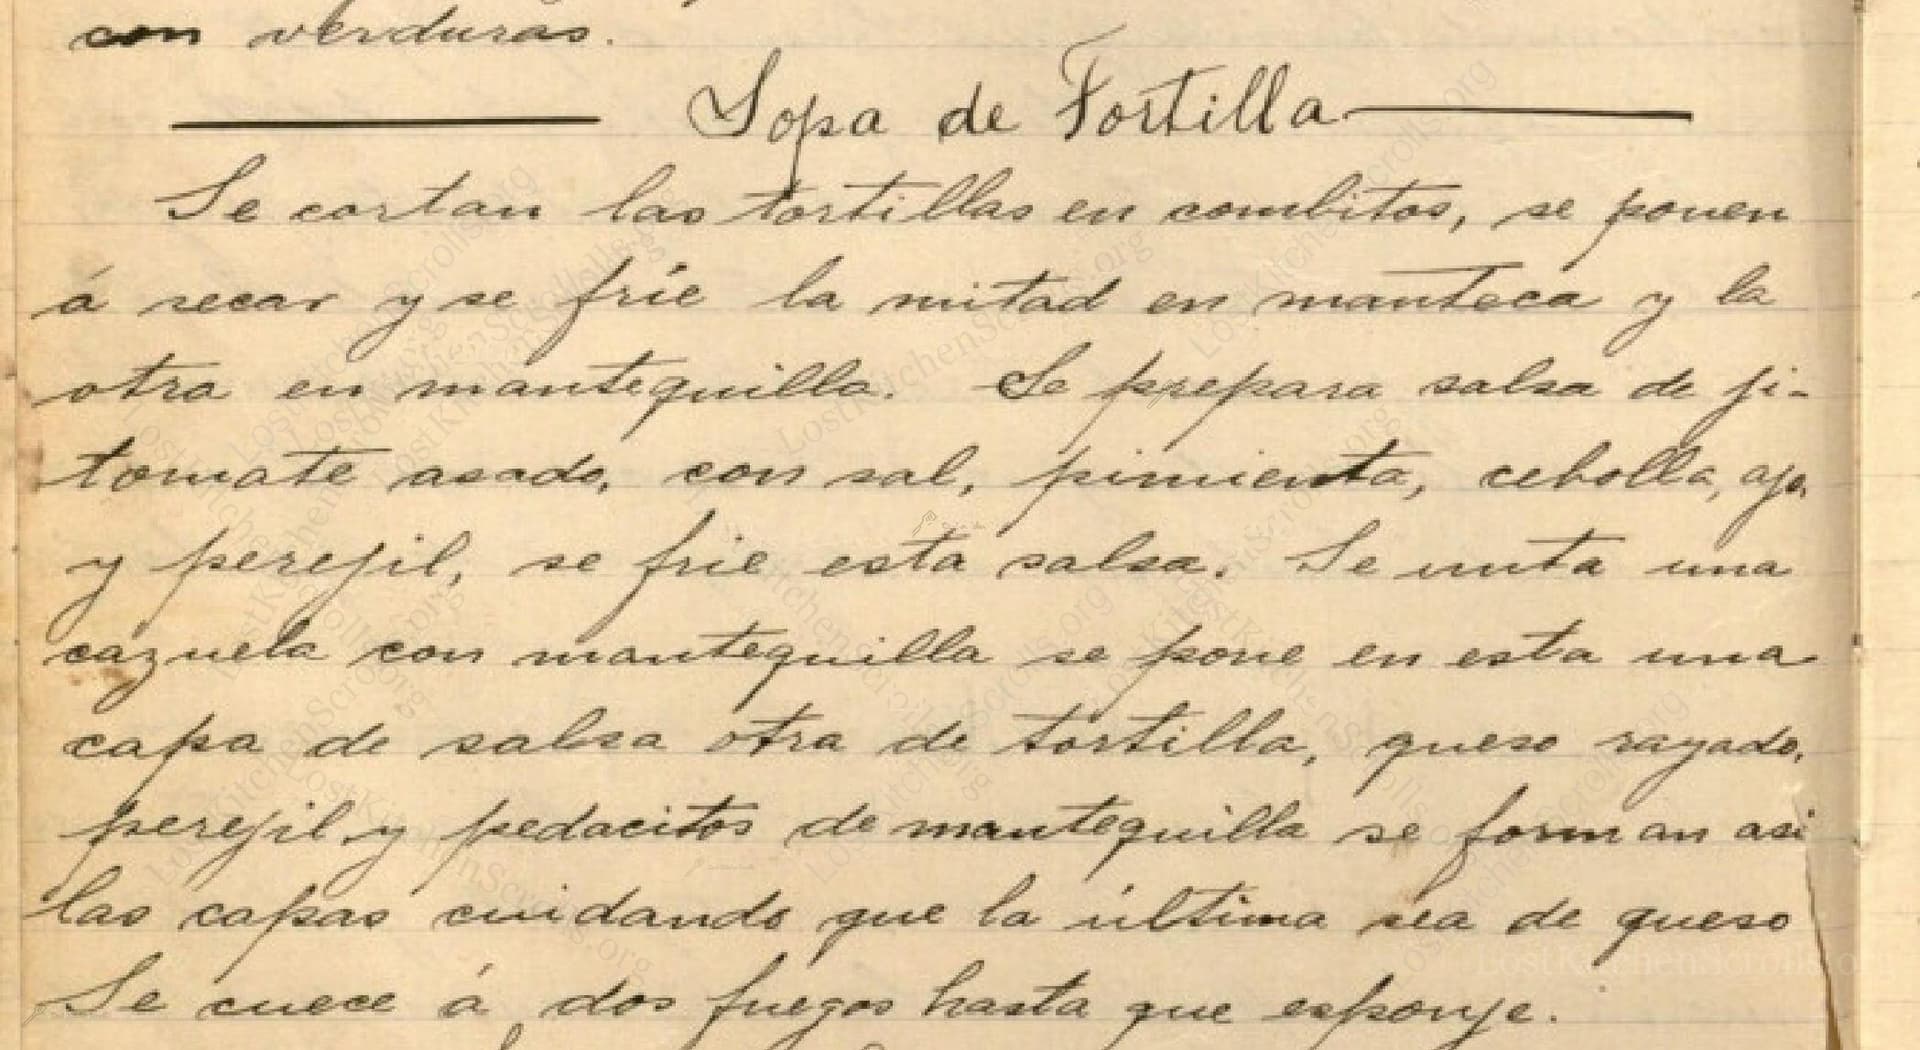 con verduras.
Sopa de Tortilla
Se cortan las tortillas en combitos, se ponen
á secar y se fríe la mitad en manteca y la
otra en mantequilla. Se prepara salsa de ji-
tomate asado, con sal, pimienta, cebolla, ajo,
y perejil, se frie esta salsa. Se unta una
cazuela con mantequilla se pone en esta una
capa de salsa otra de tortilla, queso rayado,
perejil y pedacitos de mantequilla se forman asi
las capas cuidando que la última sea de queso
Se cuece á dos fuegos hasta que esponje.
LostKitchenScrolls.org